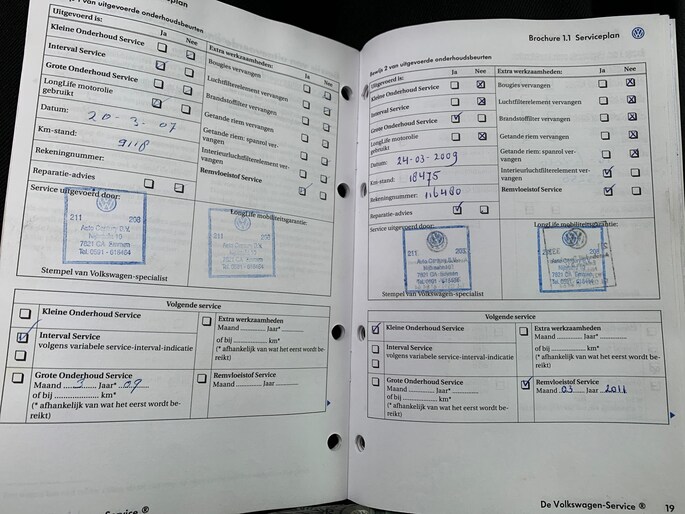 van uitgevoerde onderhoudsbeurten
Uitgevoerd is: Ja Nee
Kleine Onderhoud Service
Interval Service
Grote Onderhoud Service
LongLife motorolie
gebruikt
Datum: 20-3-07
Km-stand: 9118
Rekeningnummer:
Reparatie-advies
Service uitgevoerd door:
Extra werkzaamheden:
Bougies vervangen
Luchtfilterelement vervangen
Brandstoffilter vervangen
Getande riem vervangen
Getande riem: spanrol ver-
vangen
Interieurluchtfilterelement ver-
vangen
Remvloeistof Service
LongLife mobiliteitsgarantie:
211 206
Stempel van Volkswagen-specialist
Volgende service
Kleine Onderhoud Service
Interval Service
volgens variabele service-interval-indicatie
Grote Onderhoud Service
Maand ...3... Jaar* ..09..
of bij .................. km*
(* afhankelijk van wat het eerst wordt be-
reikt)
Extra werkzaamheden
Maand ........ Jaar* ........
of bij .................. km*
(* afhankelijk van wat het eerst wordt be-
reikt)
Remvloeistof Service
Maand ........ Jaar ........
Service ®
Brochure 1.1 Serviceplan
Bewijs 2 van uitgevoerde onderhoudsbeurten
Uitgevoerd is: Ja Nee
Kleine Onderhoud Service
Interval Service
Grote Onderhoud Service
LongLife motorolie
gebruikt
Datum: 24-03-2009
Km-stand: 18475
Rekeningnummer: 116480
Reparatie-advies
Service uitgevoerd door:
Extra werkzaamheden: Ja Nee
Bougies vervangen
Luchtfilterelement vervangen
Brandstoffilter vervangen
Getande riem vervangen
Getande riem: spanrol ver-
vangen
Interieurluchtfilterelement
vervangen
Remvloeistof Service
LongLife mobiliteitsgarantie:
211
Stempel van Volkswagen-specialist
Volgende service
Kleine Onderhoud Service
Interval Service
volgens variabele service-interval-indicatie
Grote Onderhoud Service
Maand ........ Jaar* ........
of bij .................. km*
(* afhankelijk van wat het eerst wordt be-
reikt)
Extra werkzaamheden
Maand ........ Jaar* ........
of bij .................. km*
(* afhankelijk van wat het eerst wordt be-
reikt)
Remvloeistof Service
Maand 03 Jaar 2011
De Volkswagen-Service ® 19